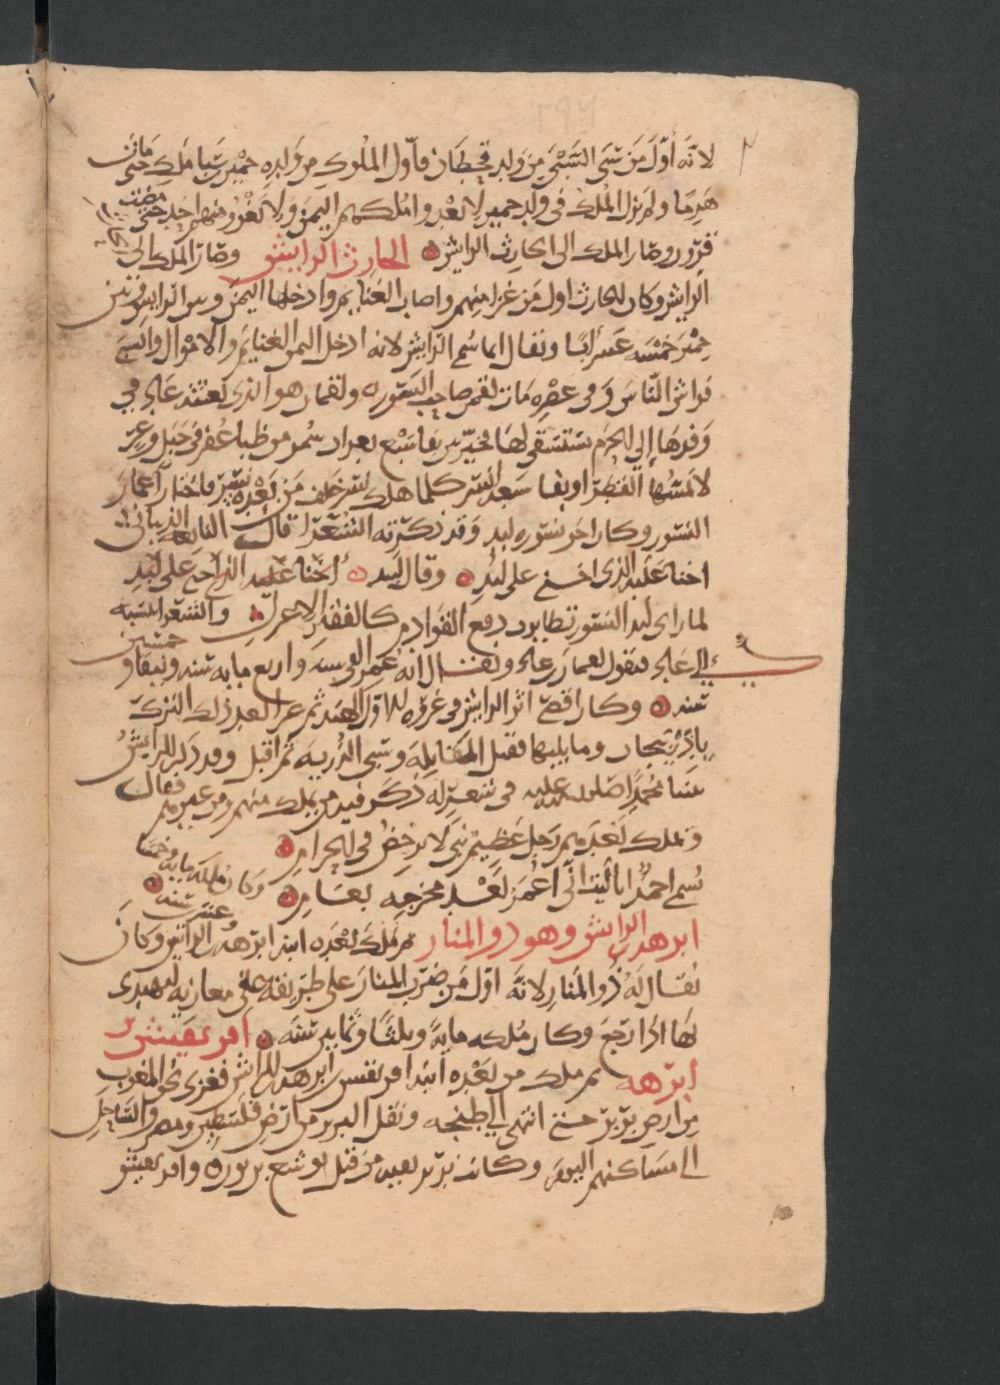 لانه أوّل من سبى السبي من ولد قحطان فاول الملوك من ولده حمير بن سبا ملك حتى مات
هرما ولم يزل الملك في ولد حمير لا يعدوا ملكهم اليمن ولا يغزوا منهم احد حتى مضت
قرون وصار الملك الى الحارث الرايش الحارث الرايش وصار الملك الى
الرايش وكان الحارث اول من غزا منهم واصاب الغنايم وادخلها اليمن وبين الرايش وبين
حمير خمسة عشر ابا ويقال انما سمي الرايش لانه ادخل اليمن الغنايم والاموال والسبي
فراش الناس وفي عصره مات لقمن صاحب النسور ولقمان هو الذي بعثته عاد في
وفدها إلى الحرم تستسقي لها فخير بين بقا سبع بعرات سمر من ظباء عفر في جبل وعر
لا يمسها القطر او بقا سبعة انسر كلما هلك نسر خلف من بعده نسر فاختار اعمار
النسور وكان اخر نسوره لبد وقد ذكرته الشعرا قال النابغة الذبياني
اخنا عليها الذي اخنى على لبد وقال لبيد
لما راى لبد النسور تطايرت رفع القوادم كالفقير الاعزل والشعر المنسبه
الى عاد فيقول لقمان بن عاد ويقال انه عمر الفي سنه واربع مايه سنه ونيفا و خمسين
سنه وكان اقصى اثر الرايش في غزوه الاول الهند ثم غزا بعد ذلك الترك
باذربيجان وما يليها فقتل المقاتلة وسبى الذرية ثم اقبل وقد ذكر الرايش
نبينا محمدًا صلى الله عليه في شعر له ذكر فيه من يملك منهم ومن غيرهم فقال
ويملك بعدهم رجل عظيم نبي لا يرخص في الحرام
يسمى احمدًا يا ليت اني اعمر بعد مخرجه بعام وكان ملكه مايه وخمسا
وعشرين سنه
ابرهه بن الرايش وهو ذو المنار ثم ملك بعده ابنه ابرهة بن الرايش وكان
يقال له ذو المنار لانه اوّل من ضرب المنار على طريقه على مغازيه ليهتدى
بها اذا رجع وكان ملكه مايةً وثلثًا وثمانين سنه افريقيس بن
ابرهه ثم ملك من بعده ابنه افريقيس بن ابرهه بن الرايش فغزى نحو المغرب
من ارض بربر حتى انتهى الى طنجه ونقل البربر من ارض فلسطين ومصر والساحل
الى مساكنهم اليوم وكانت بربر بقيه من قتل يوشع بن نون وافريقيس